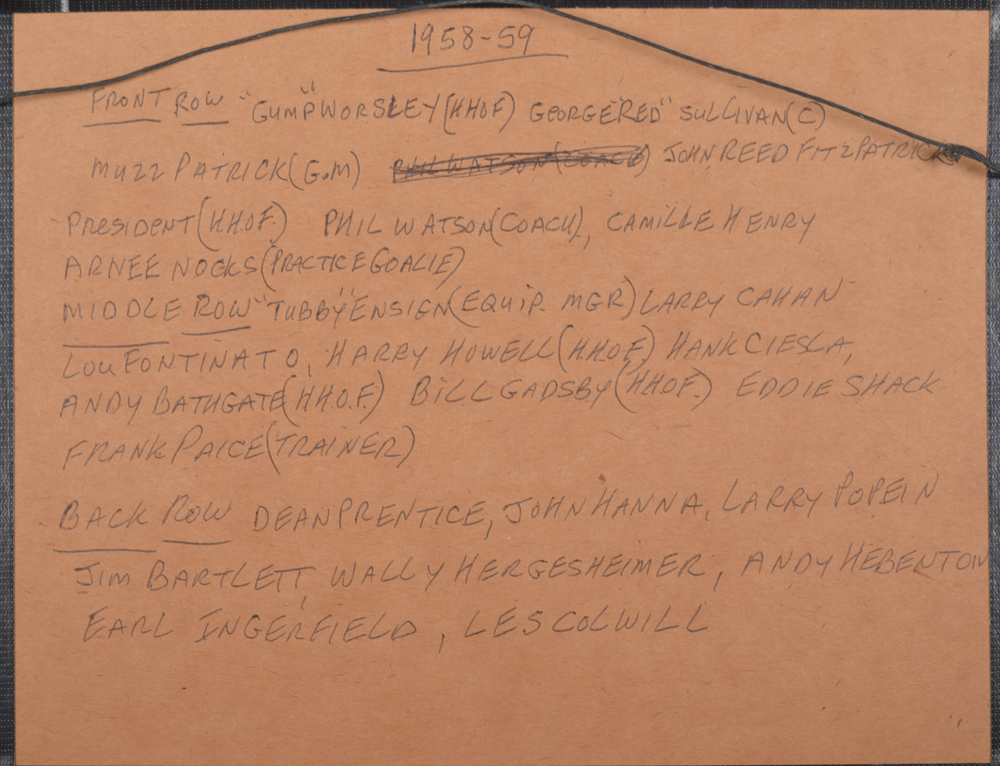 1958-59
FRONT ROW "GUMP" WORSLEY (HHOF) GEORGE "RED" SULLIVAN (C)
MUZZ PATRICK (G.M) PHIL WATSON (COACH) JOHN REED FITZPATRICK
PRESIDENT (HHOF.) PHIL WATSON (COACH), CAMILLE HENRY
ARNEE NOCKS (PRACTICE GOALIE)
MIDDLE ROW "TUBBY" ENSIGN (EQUIP. MGR) LARRY CAHAN
LOU FONTINATO, HARRY HOWELL (HHOF) HANK CIESLA,
ANDY BATHGATE (HH.O.F.) BILL GADSBY (HHOF.) EDDIE SHACK
FRANK PAICE (TRAINER)
BACK ROW DEAN PRENTICE, JOHN HANNA, LARRY POPEIN
JIM BARTLETT, WALLY HERGESHEIMER, ANDY HEBENTON
EARL INGERFIELD, LES COLWILL